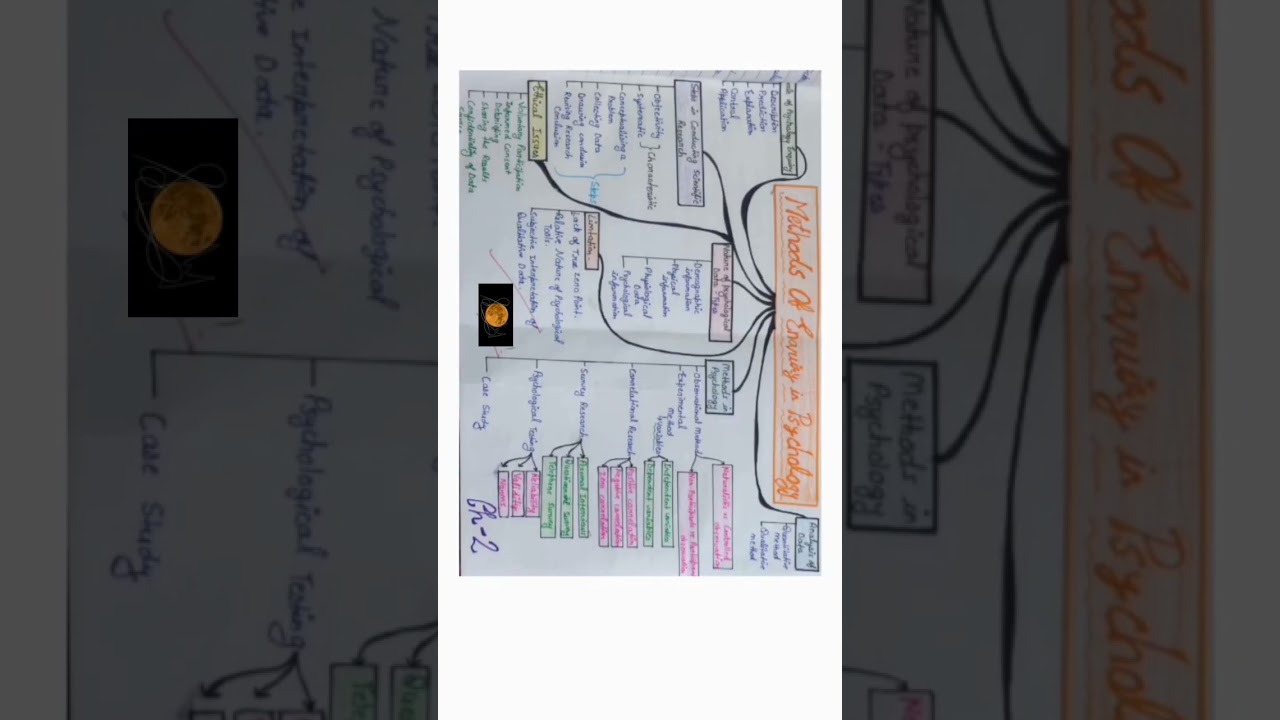 Methods Of Enquiry in Psychology
Goals of Psychology Enquiry
Description
Prediction
Explanation
Control
Application
Steps in Conducting Scientific
Research
Objectivity
Systematic
} Characteristic
Conceptualising a
Problem
Collecting Data
Drawing conclusion
Revising Research
Conclusion
} Steps
Ethical Issues
Voluntary Participation
Informed Consent
Debriefing
Sharing the Results
Confidentiality of Data
Nature of Psychological
Data - Types
Demographic
information
Physical
information
Physiological
Data
Psychological
information
Limitation
Lack of True Zero Point.
Relative Nature of Psychological
Tools.
Subjective Interpretation of
Qualitative Data.
Methods in
Psychology
Observational Method
Naturalistic vs Controlled
observation
Non Participants vs Participant
observation
Experimental
Method
Variables
Independent variables
Dependent variables
Correlational Research
Positive correlation
Negative correlation
Zero correlation
Survey Research
Personal Interviews
Questionnaire Survey
Telephone Survey
Psychological Testing
Reliability
Validity
Norms
Case Study
Analysis of
Data
Quantitative
method
Qualitative
method
Ch-2